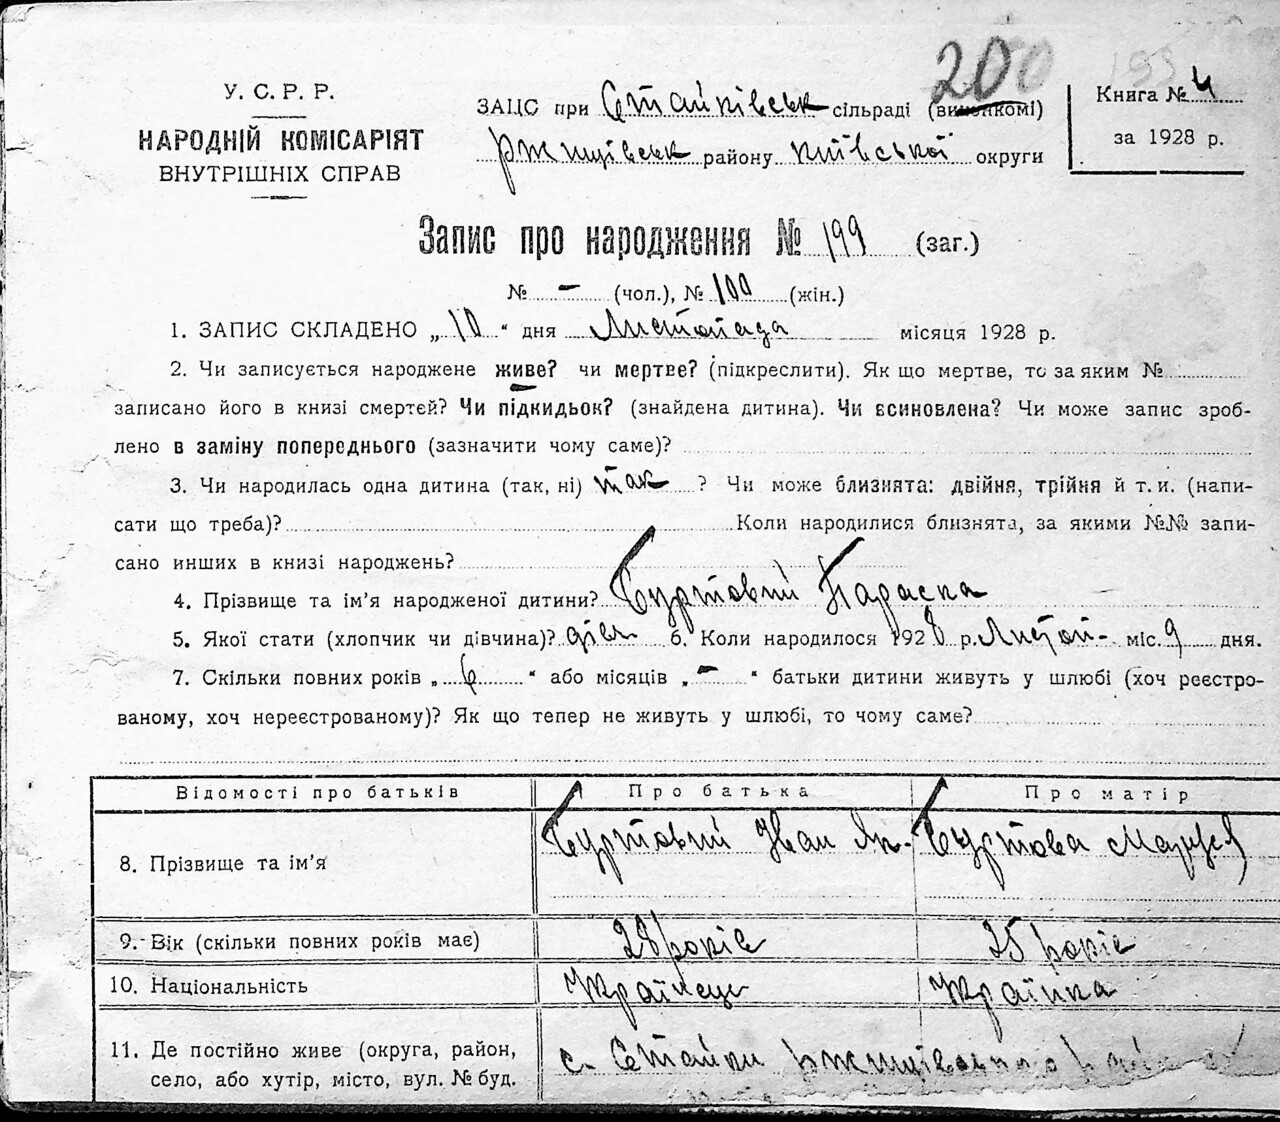 200
У. С. Р. Р.
НАРОДНІЙ КОМІСАРІЯТ
ВНУТРІШНІХ СПРАВ
ЗАЦС при Стайківськ сільраді (виконкомі)
Ржищівськ району київської округи
Книга № 4
за 1928 р.
Запис про народження № 199 (заг.)
№ - (чол.), № 100 (жін.)
1. ЗАПИС СКЛАДЕНО „10“ дня Листопада місяця 1928 р.
2. Чи записується народжене живе? чи мертве? (підкреслити). Як що мертве, то за яким №
записано його в книзі смертей? Чи підкидьок? (знайдена дитина). Чи всиновлена? Чи може запис зроб-
лено в заміну попереднього (зазначити чому саме)?
3. Чи народилась одна дитина (так, ні) так ? Чи може близнята: двійня, трійня й т. и. (напи-
сати що треба)? Коли народилися близнята, за якими №№ запи-
сано инших в книзі народжень?
4. Прізвище та ім’я народженої дитини? Буртовий Параска
5. Якої стати (хлопчик чи дівчина)? дівч 6. Коли народилося 1928 р. Листоп- міс. 9 дня.
7. Скільки повних років „6“ або місяців „-“ батьки дитини живуть у шлюбі (хоч реєстро-
ваному, хоч нереєстрованому)? Як що тепер не живуть у шлюбі, то чому саме?
Відомості про батьків Про батька Про матір
8. Прізвище та ім’я Буртовий Іван Як. Буртова Маруся
9. Вік (скільки повних років має) 28 років 25 років
10. Національність Українець Українка
11. Де постійно живе (округа, район, с. Стайки Ржищівського
село, або хутір, місто, вул. № буд.